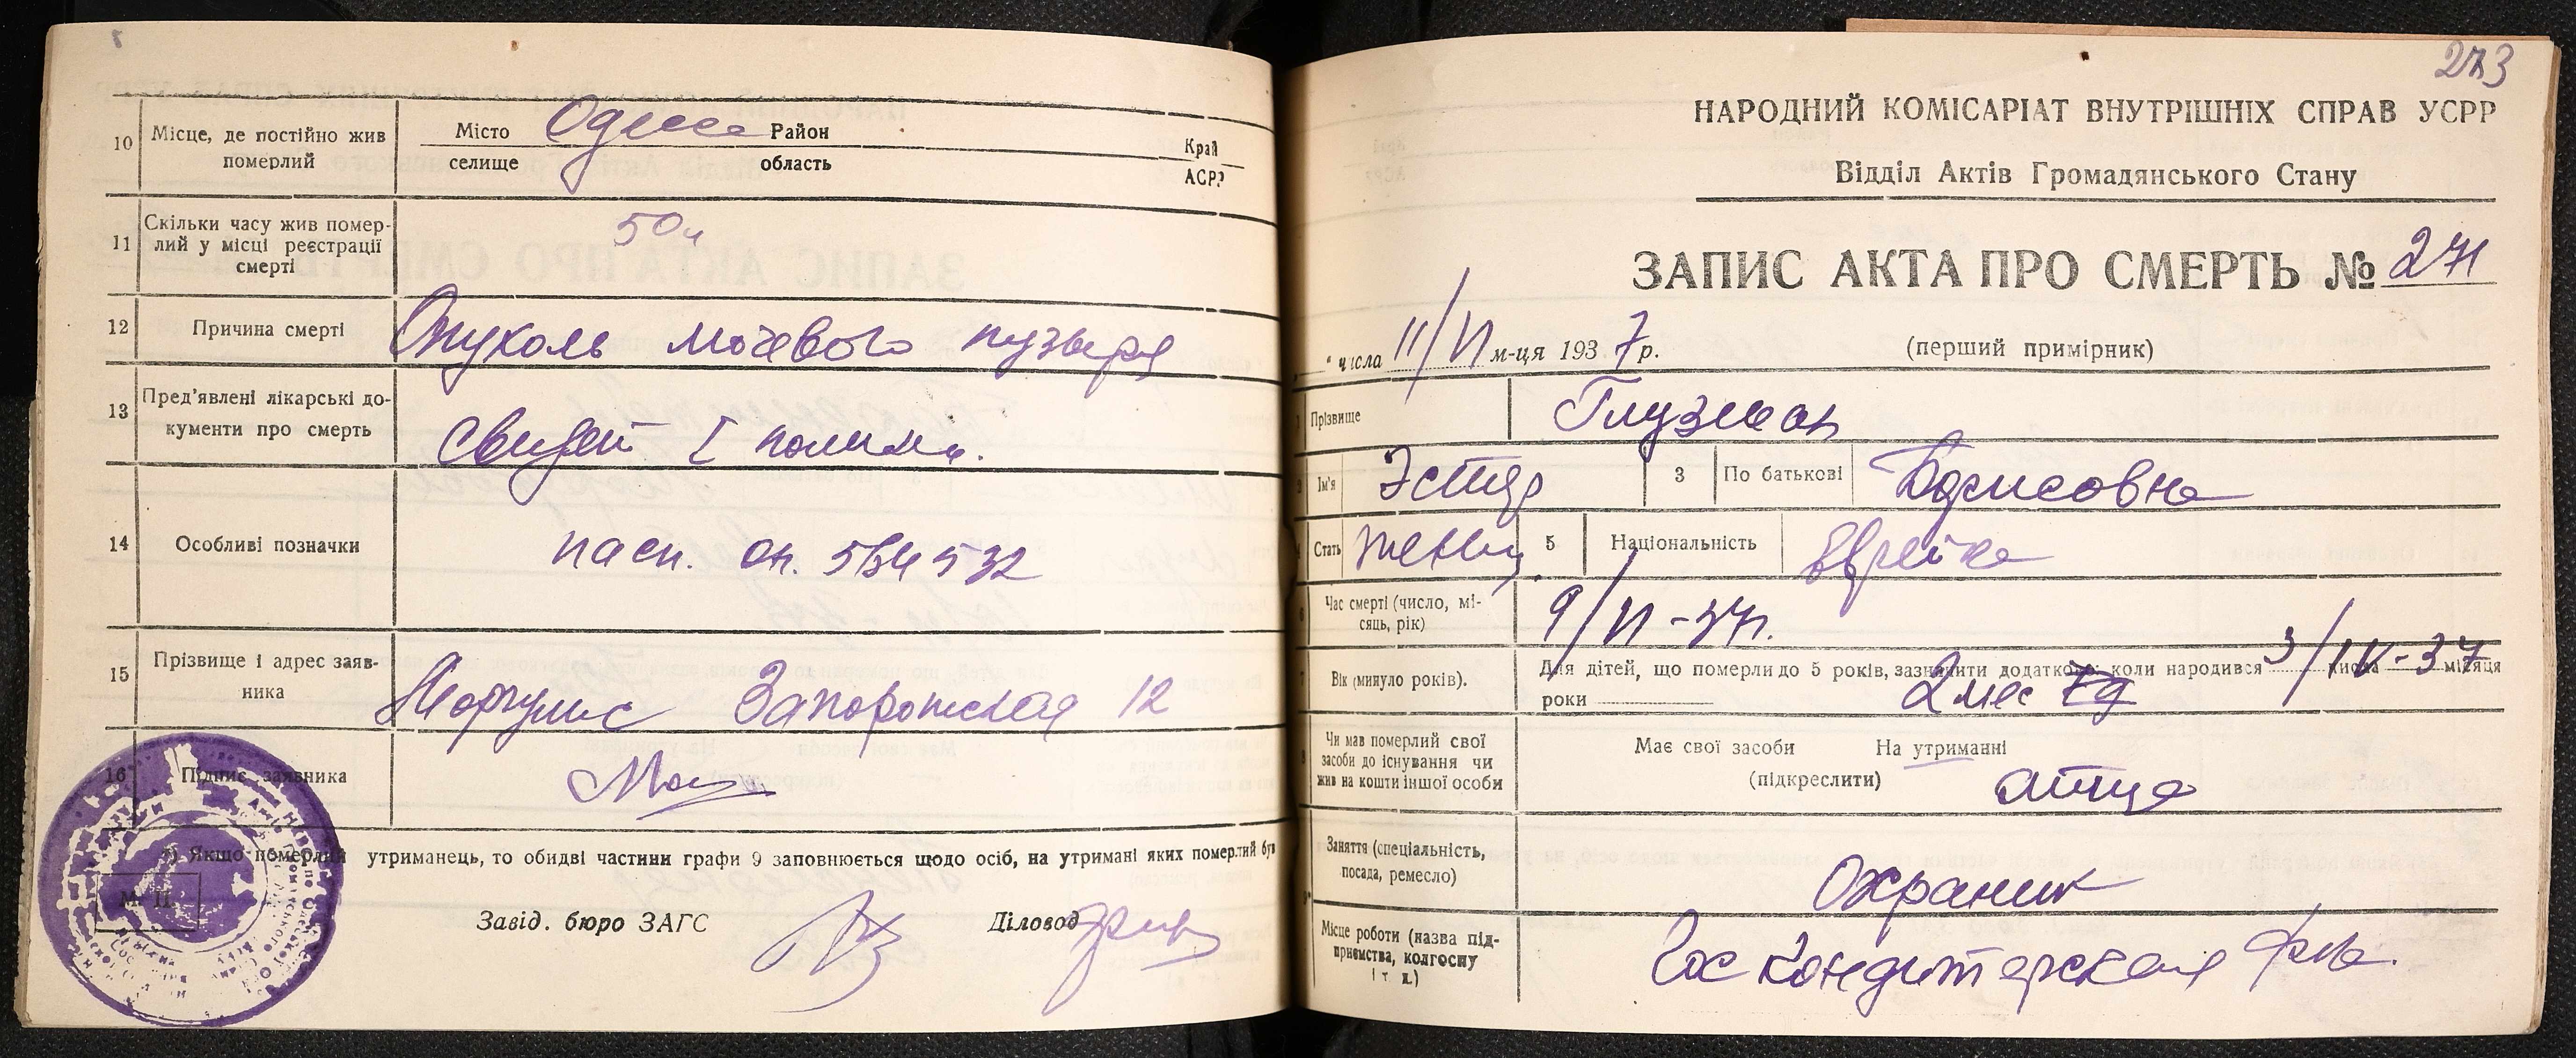 10 Місце, де постійно жив померлий
Місто Одесса Район Край
селище область АСРР
11 Скільки часу жив помер-
лий у місці реєстрації
смерті
12 Причина смерті Опухоль мочевого пузыря
13 Пред'явлені лікарські до-
кументи про смерть
Свидет I полик.
14 Особливі позначки пасп. оп. 564532
15 Прізвище і адрес заяв-
ника
Моргулис Запорожская 12
16 Підпис заявника
*) Якщо померлий утриманець, то обидві частини графи 9 заповнюється щодо осіб, на утримані яких померлий був
М. П.
Завід. бюро ЗАГС Діловод
273
НАРОДНИЙ КОМІСАРІАТ ВНУТРІШНІХ СПРАВ УСРР
Відділ Актів Громадянського Стану
ЗАПИС АКТА ПРО СМЕРТЬ № 271
" числа 11/VI м-ця 1937 р. (перший примірник)
Прізвище Глузман
Ім'я Эстер 3 По батькові Борисовна
Стать женщ. 5 Національність Еврейка
Час смерті (число, мі-
сяць, рік)
9/VI-37г.
7 Вік (минуло років).
Для дітей, що померли до 5 років, зазначити додатково: коли народився 3/IV-37 числа місяця
роки 2 мес
Чи мав померлий свої
засоби до існування чи
жив на кошти іншої особи
Має свої засоби На утриманні
(підкреслити) отца
Заняття (спеціальність,
посада, ремесло)
Охраник
Місце роботи (назва під-
приємства, колгоспу
і т. д.)
Гос Кондитерская ф-ка.